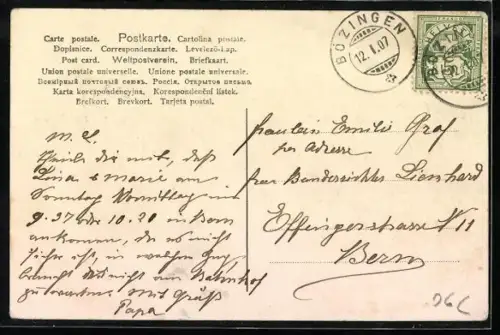 Carte postale. Postkarte. Cartolina postale.
Dopisnice. Correspondenzkarte. Levelező-Lap.
Post card. Weltpostverein. Briefkaart.
Union postale universelle. Unione postale universale.
Всемірный почтовый союзъ. Россія. Открытое письмо.
Karta korespondencyjna. Korespondenční listek.
Brefkort. Brevkort. Tarjeta postal.
BÖZINGEN
12.I.07
BÖZIN
M. L.
Theile dir mit, daß
Lina & Marie am
Sonntag Vormittag um
9.37 oder 10.20 in Bern
ankommen, da es nicht
sicher ist, in welchem Zug,
braucht nicht am Bahnhof
zu warten. Mit Gruß
Papa
Fräulein Emilie Graf
per Adresse
Frau Bundesrichter Lienhard
Effingerstrasse No 11
Bern